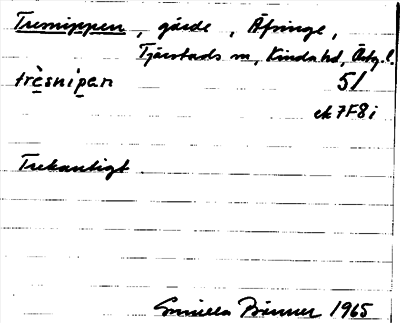 Tresnippen, gärde, Äpinge,
Tjärstads sn, Kinda hd, Östg.l.
trèsnipan 51
ek 7F8i
Trekantigt.
Gunilla Primer 1965